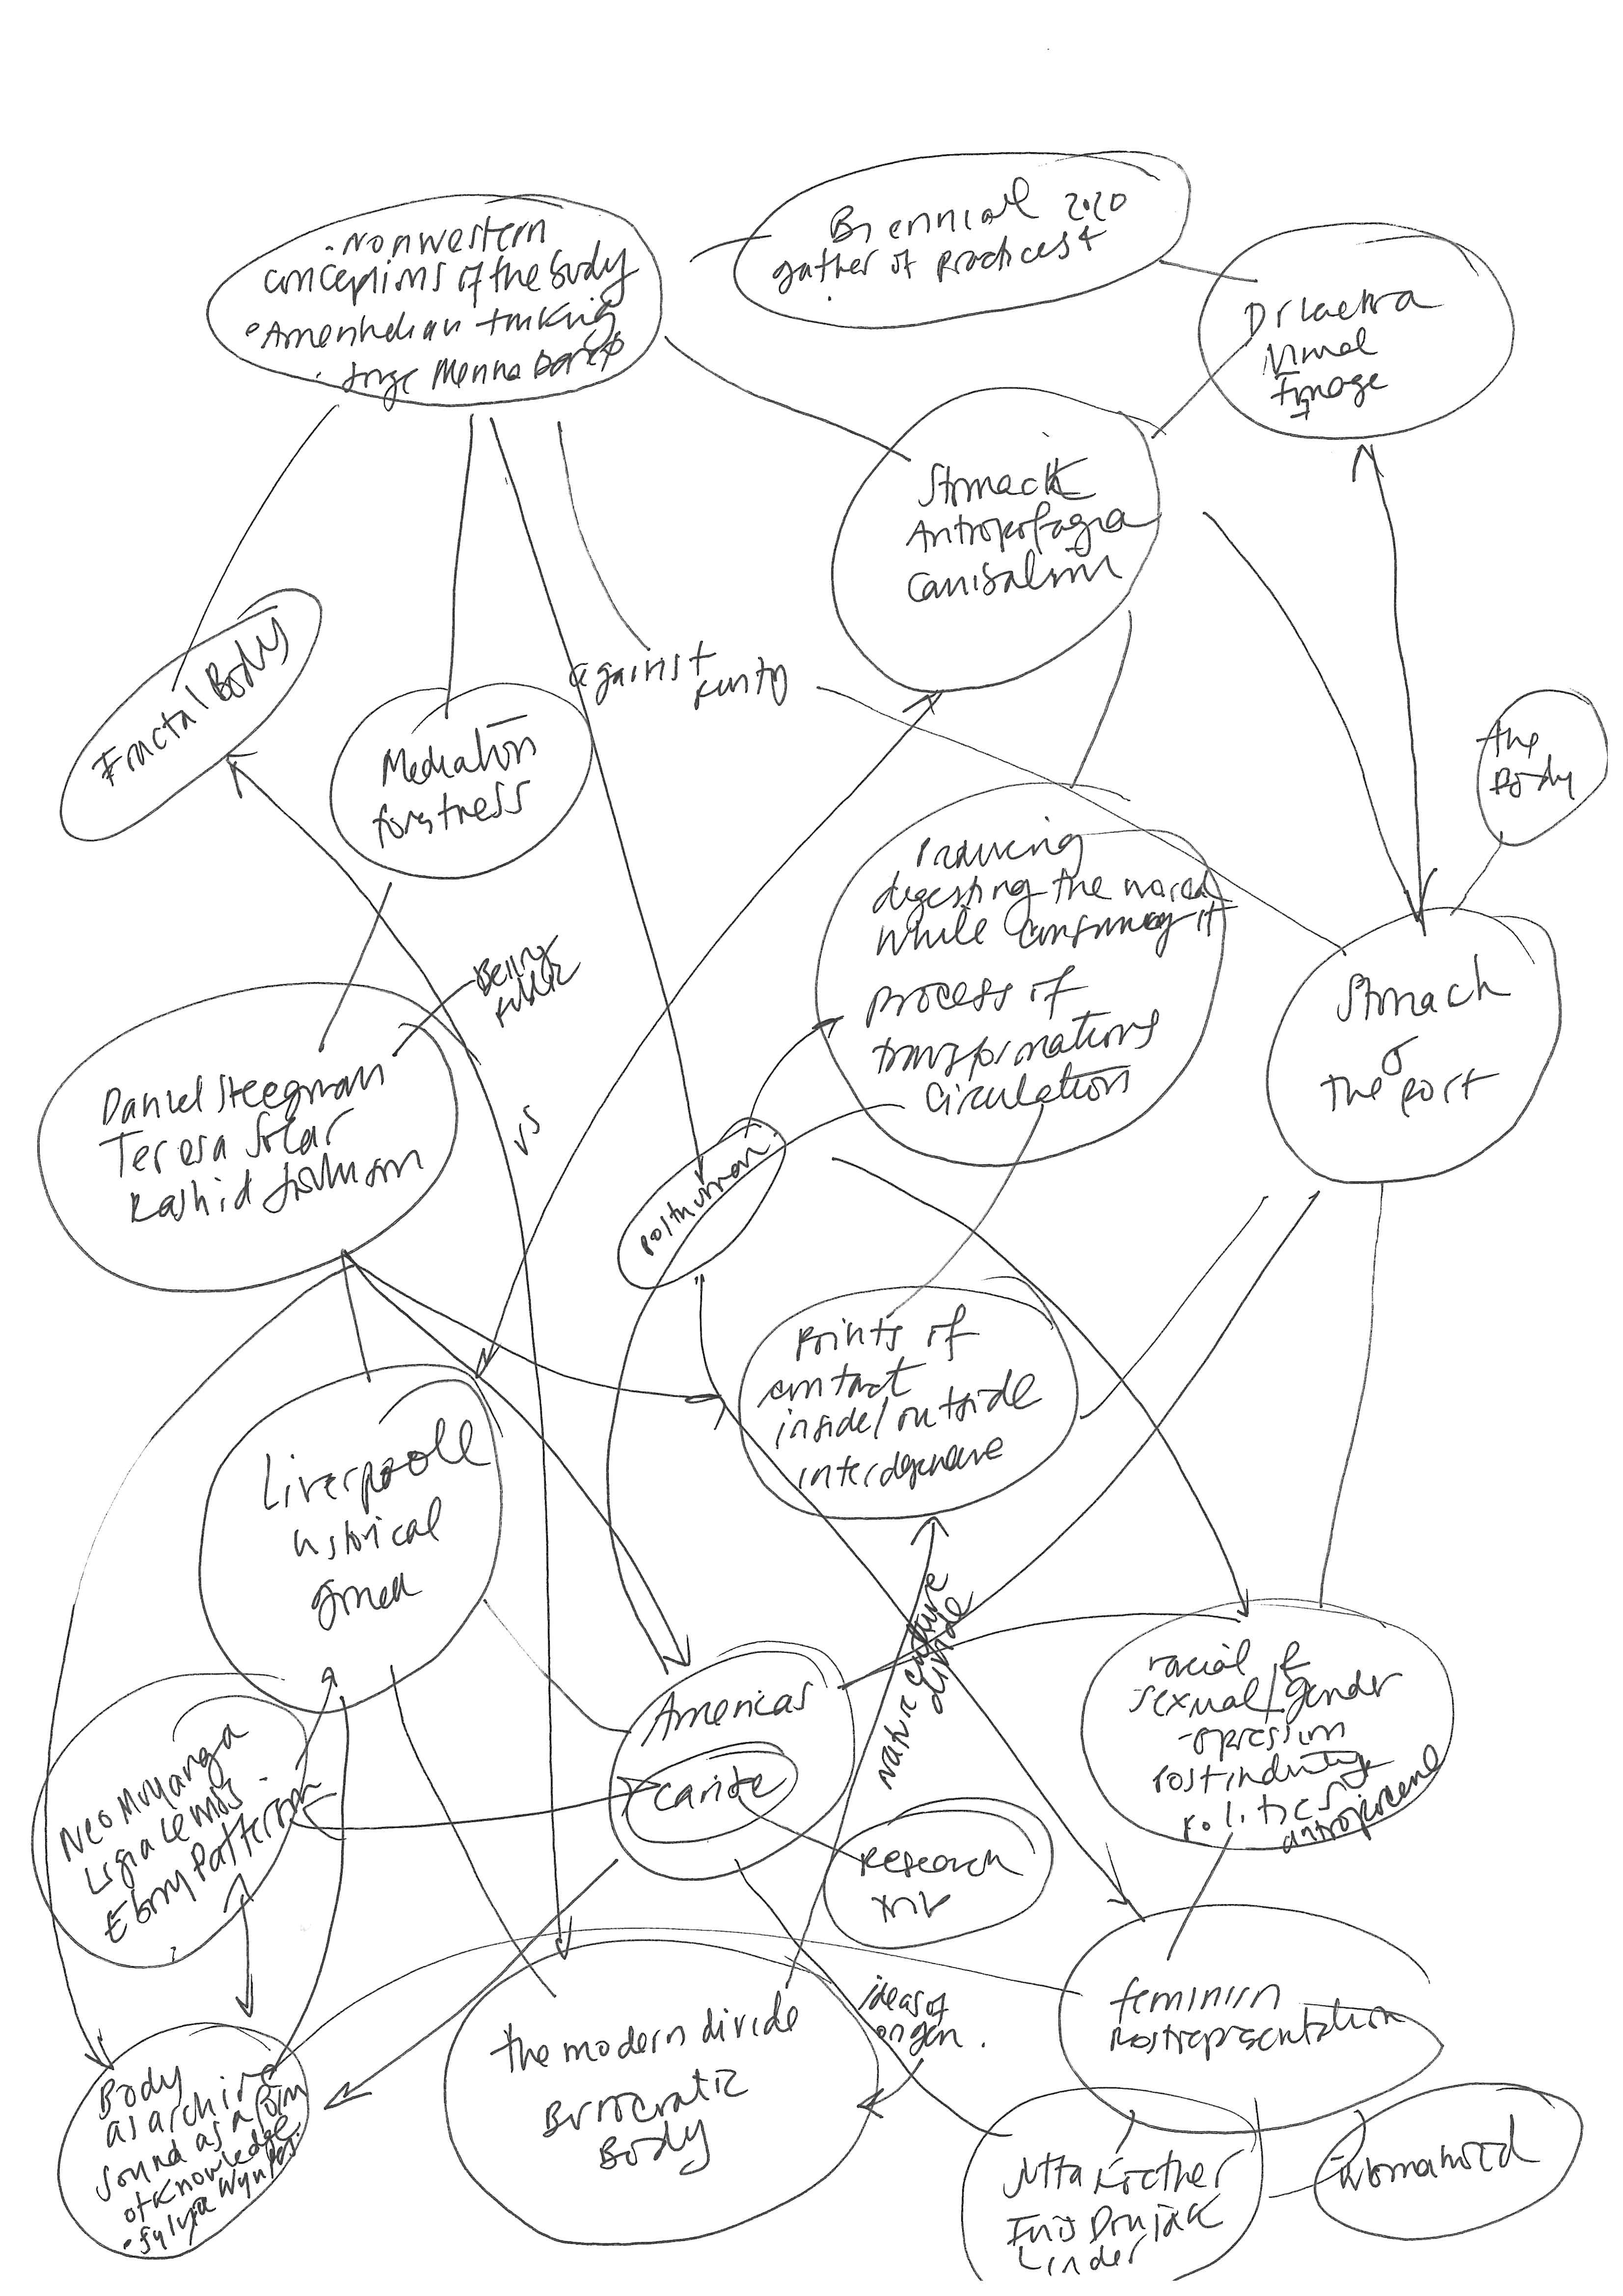 Biennial 2020
gather of practices +
. Nonwestern
conceptions of the body
• Amerindian thinking
. Jorge Menna Barreto
Visual
Image
Stomach
Antropofagia
Canibalism
Fractal Body
against
Mediation
forstness
The
Body
Producing
digesting the world
while consuming it
process of
transformations
Circulation
Being
Public
Stomach
of
the port
Daniel Steegman
Teresa Solar
Rashid Johnson
vs
posthuman
Points of
contact
inside/outside
interdependence
Liverpool
historical
Nature culture
divide
Americas
Caribe
racial &
sexual/gender
-opression
Postindustry
Politics
antropocene
Neo Muyanga
Ligia Lewis
Ebony Patterson
Research
ideas of
feminism
Postrepresentation
the modern divide
Burocratic
Body
Body
as archive
Sound as a form
of Knowledge
• Sylvia Wynter
Jutta Koether
Ines Doujak
Linder
Womanhood